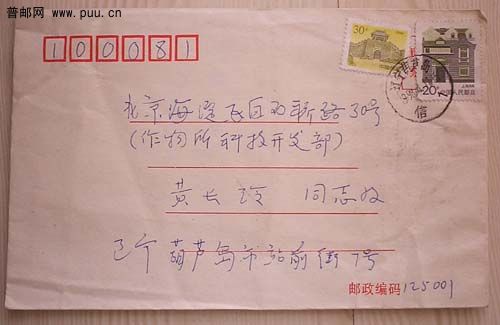 普邮网
www.puu.cn
30分
20分
中国人民邮政
信
100081
北京海淀区白石桥路30号
(作物所科技开发部)
黄长玲 同志收
辽宁葫芦岛市站前街7号
邮政编码125001